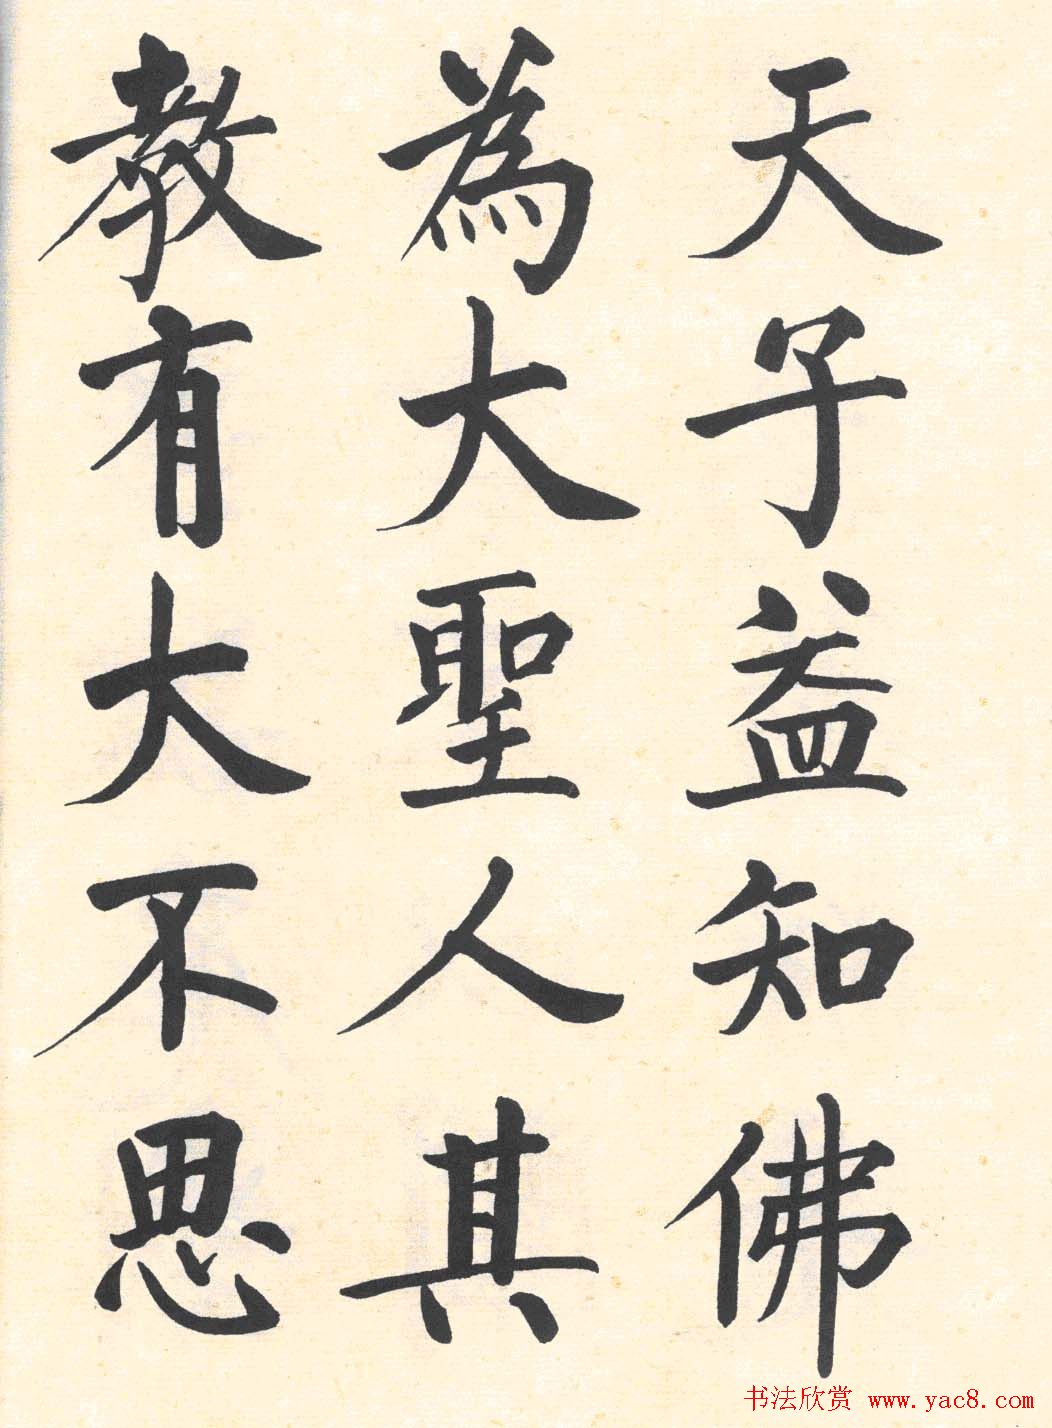 天子益知佛
為大聖人其
教有大不思
书法欣赏 www.yac8.com